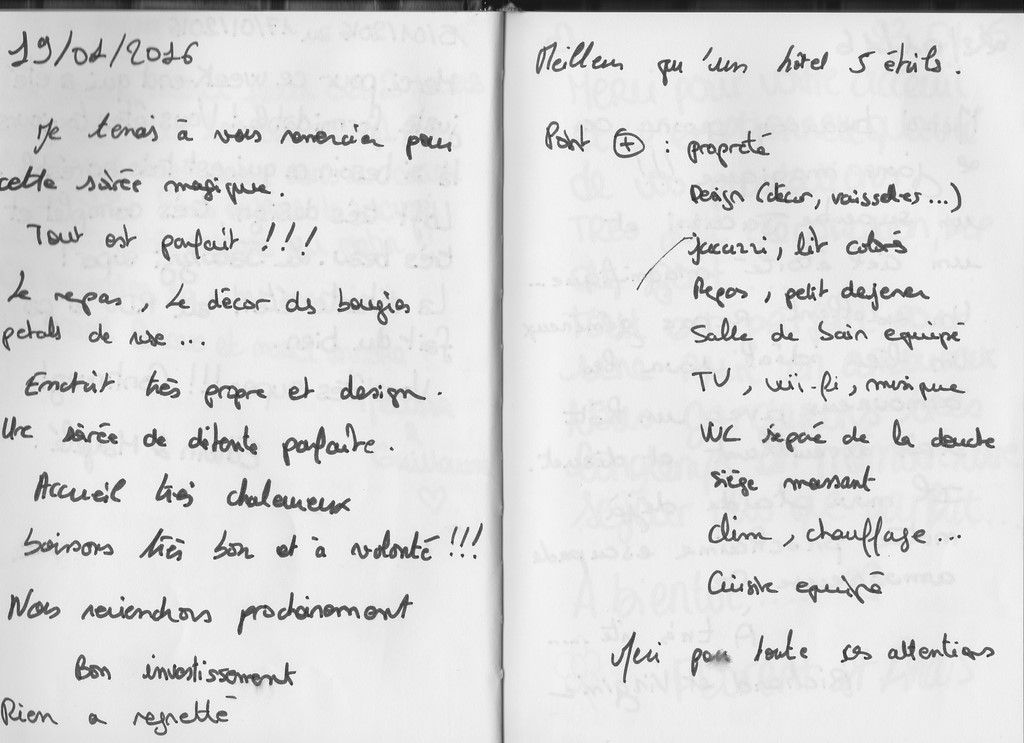 19/01/2016
Je tenais a vous remercier pour
cette soirée magique.
Tout est parfait !!!
Le repas, Le décor des bougies
petals de rose...
Endroit très propre et design.
Une soirée de détente parfaite.
Accueil très chaleureux
boissons très bon et à volonté !!!
Nous reviendrons prochainement
Bon investissement
Rien a regretté
Meilleur qu'un hôtel 5 étoils.
Point + : propreté
Design (décor, vaisselles...)
jacuzzi, lit colors
Repas, petit dejener
Salle de bain equipé
TV, wi-fi, musique
WC séparé de la douche
siège massant
Clim, chauffage...
Cuisine equipé
Merci pour toute ses attentions